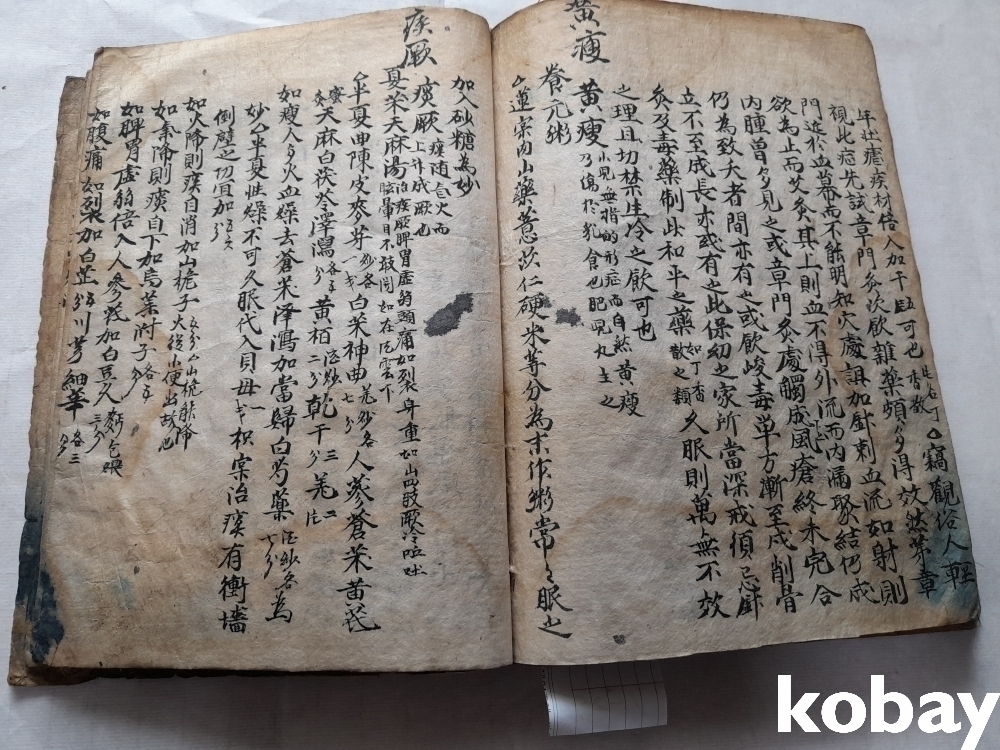 △竊觀俗人輕
年壯瘧疾材倍入加干五可也
視此症先試章門灸次飮雜藥頗多得效然第章
門近於血幕而不能明知穴處誤加針刺血流如射則
欲爲止而艾灸其上則血不得外流而內漏聚結仍成
內腫曾多見之或章門灸處觸成風瘡終未完合
仍爲致夭者間亦有之或飮峻毒單方漸至成削骨
立不至成長亦或有之此保幼之家所當深戒須忌針
灸及毒藥制此和平之藥如丁香散之類久服則萬無不效
之理且切禁生冷之飮可也
黃瘦
黃瘦 小兒無指的形症而自然黃瘦乃傷於乳食也肥兒丸主之
養元粥
△蓮宗內山藥薏苡仁硬米等分爲末作粥常〻服之
加入砂糖爲妙
痰厥
痰厥 痰隨氣火而上升成厥也
夏朮天麻湯 治痰厥脾胃虛弱頭痛如裂身重如山四肢厥冷
眩暈目不敢開如在風雲下
半夏曲陳皮麥芽 白朮神曲 人蔘蒼朮黃芪
天麻白茯苓澤瀉 黃栢 乾干三
如瘦人多火血燥去蒼朮澤瀉加當歸白芍藥
妙半夏性燥不可久服代入貝母一 枳宗治痰有衝墻
倒壁之功宜加五分
如火降則痰自消加山梔子 火從小便出故也
如氣降則痰自下加烏藥附子
如脾胃虛弱倍入人參或加白豆久
如腹痛如裂加白芷 川芎細辛 各三
kobay